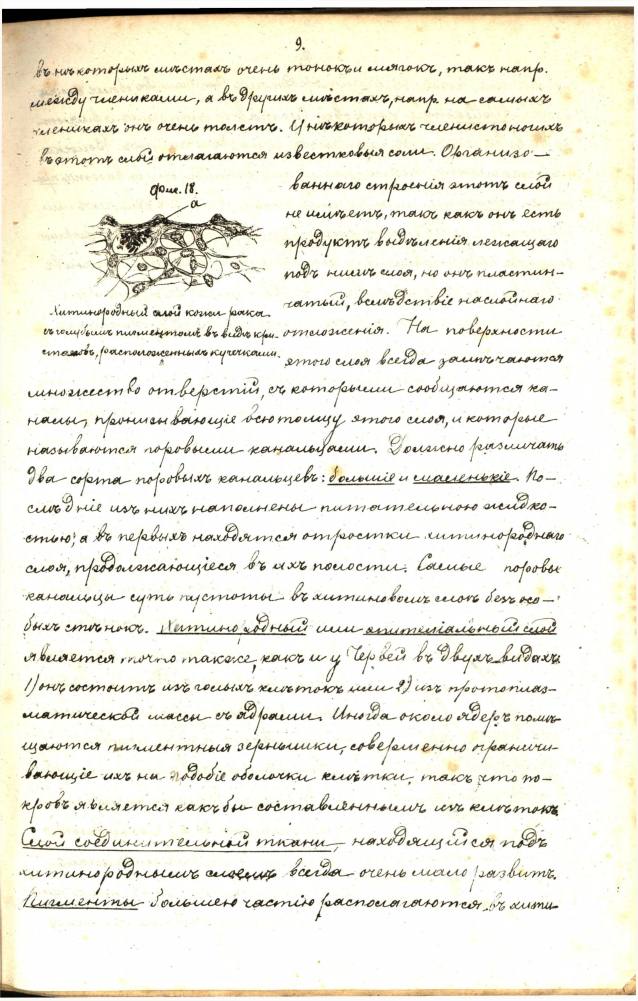 9.
въ нѣкоторыхъ мѣстахъ очень тонокъ и мягокъ, такъ напр.
между члениками, а въ другихъ мѣстахъ, напр. на самыхъ
членикахъ онъ очень толстъ. У нѣкоторыхъ членистоногихъ
въ этотъ слой отлагаются известковыя соли. Организо-
фиг. 18.
а
Хитинородный слой кожи рака
съ голубымъ пигментомъ въ видѣ кри-
сталовъ, расположенныхъ кучечками.
ваннаго строенія этотъ слой
не имѣетъ, такъ какъ онъ есть
продуктъ выдѣленія лежащаго
подъ нимъ слоя, но онъ пластин-
чатый, вслѣдствіе наслойнаго
отложенія. На поверхности
этого слоя всегда замѣчаются
множество отверстій, съ которыми сообщаются ка-
налы, пронизывающіе всю толщу этого слоя, и которые
называются поровыми канальцами. Должно различать
два сорта поровыхъ канальцевъ: большіе и маленькіе. По-
слѣдніе изъ нихъ наполнены питательною жидко-
стью; а въ первыхъ находятся отростки хитинороднаго
слоя, продолжающіеся въ ихъ полости. Самые поровые
канальцы суть пустоты въ хитиновомъ слоѣ безъ осо-
быхъ стѣнокъ. Хитинородный или эпителіальный слой
является точно также, какъ и у Червей въ двухъ видахъ:
1) онъ состоитъ изъ голыхъ клѣтокъ или 2) изъ протоплаз-
матической массы съ ядрами. Иногда около ядеръ помѣ-
щаются пигментныя зернышки, совершенно ограничи-
вающіе ихъ на подобіе оболочки клѣтки, такъ что по-
кровъ является какъ бы составленнымъ изъ клѣтокъ.
Слой соединительной ткани, находящійся подъ
хитинороднымъ слоемъ всегда очень мало развитъ.
Пигменты большею частію располагаются въ хити-